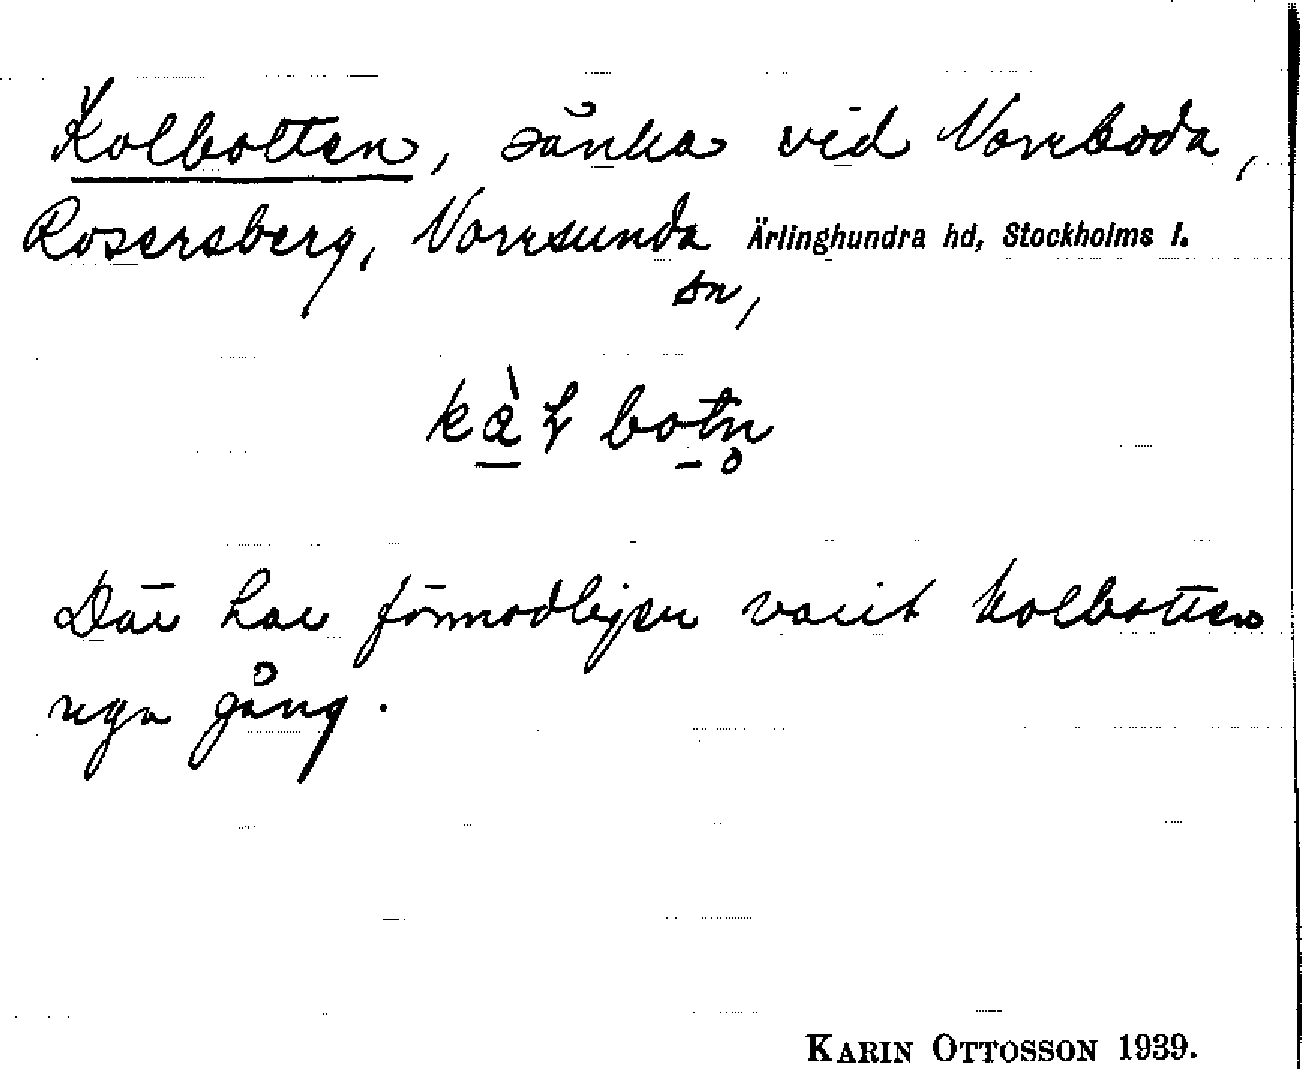 Kolbotten, sänka vid Norrboda,
Rosersberg, Norrsunda Ärlinghundra hd, Stockholms l.
sn,
botn
Där har förmodligen varit kolbotten
nga gång.
KARIN OTTOSSON 1939.